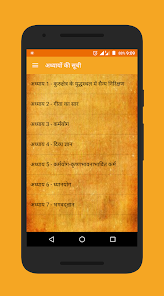 85% 9:09
अध्यायों की सूची
अध्याय 1 - कुरुक्षेत्र के युद्धस्थल में सैन्य निरीक्षण
अध्याय 2 - गीता का सार
अध्याय 3 - कर्मयोग
अध्याय 4 - दिव्य ज्ञान
अध्याय 5 - कर्मयोग-कृष्णभावनाभावित कर्म
अध्याय 6 - ध्यानयोग
अध्याय 7 - भगवद्ज्ञान